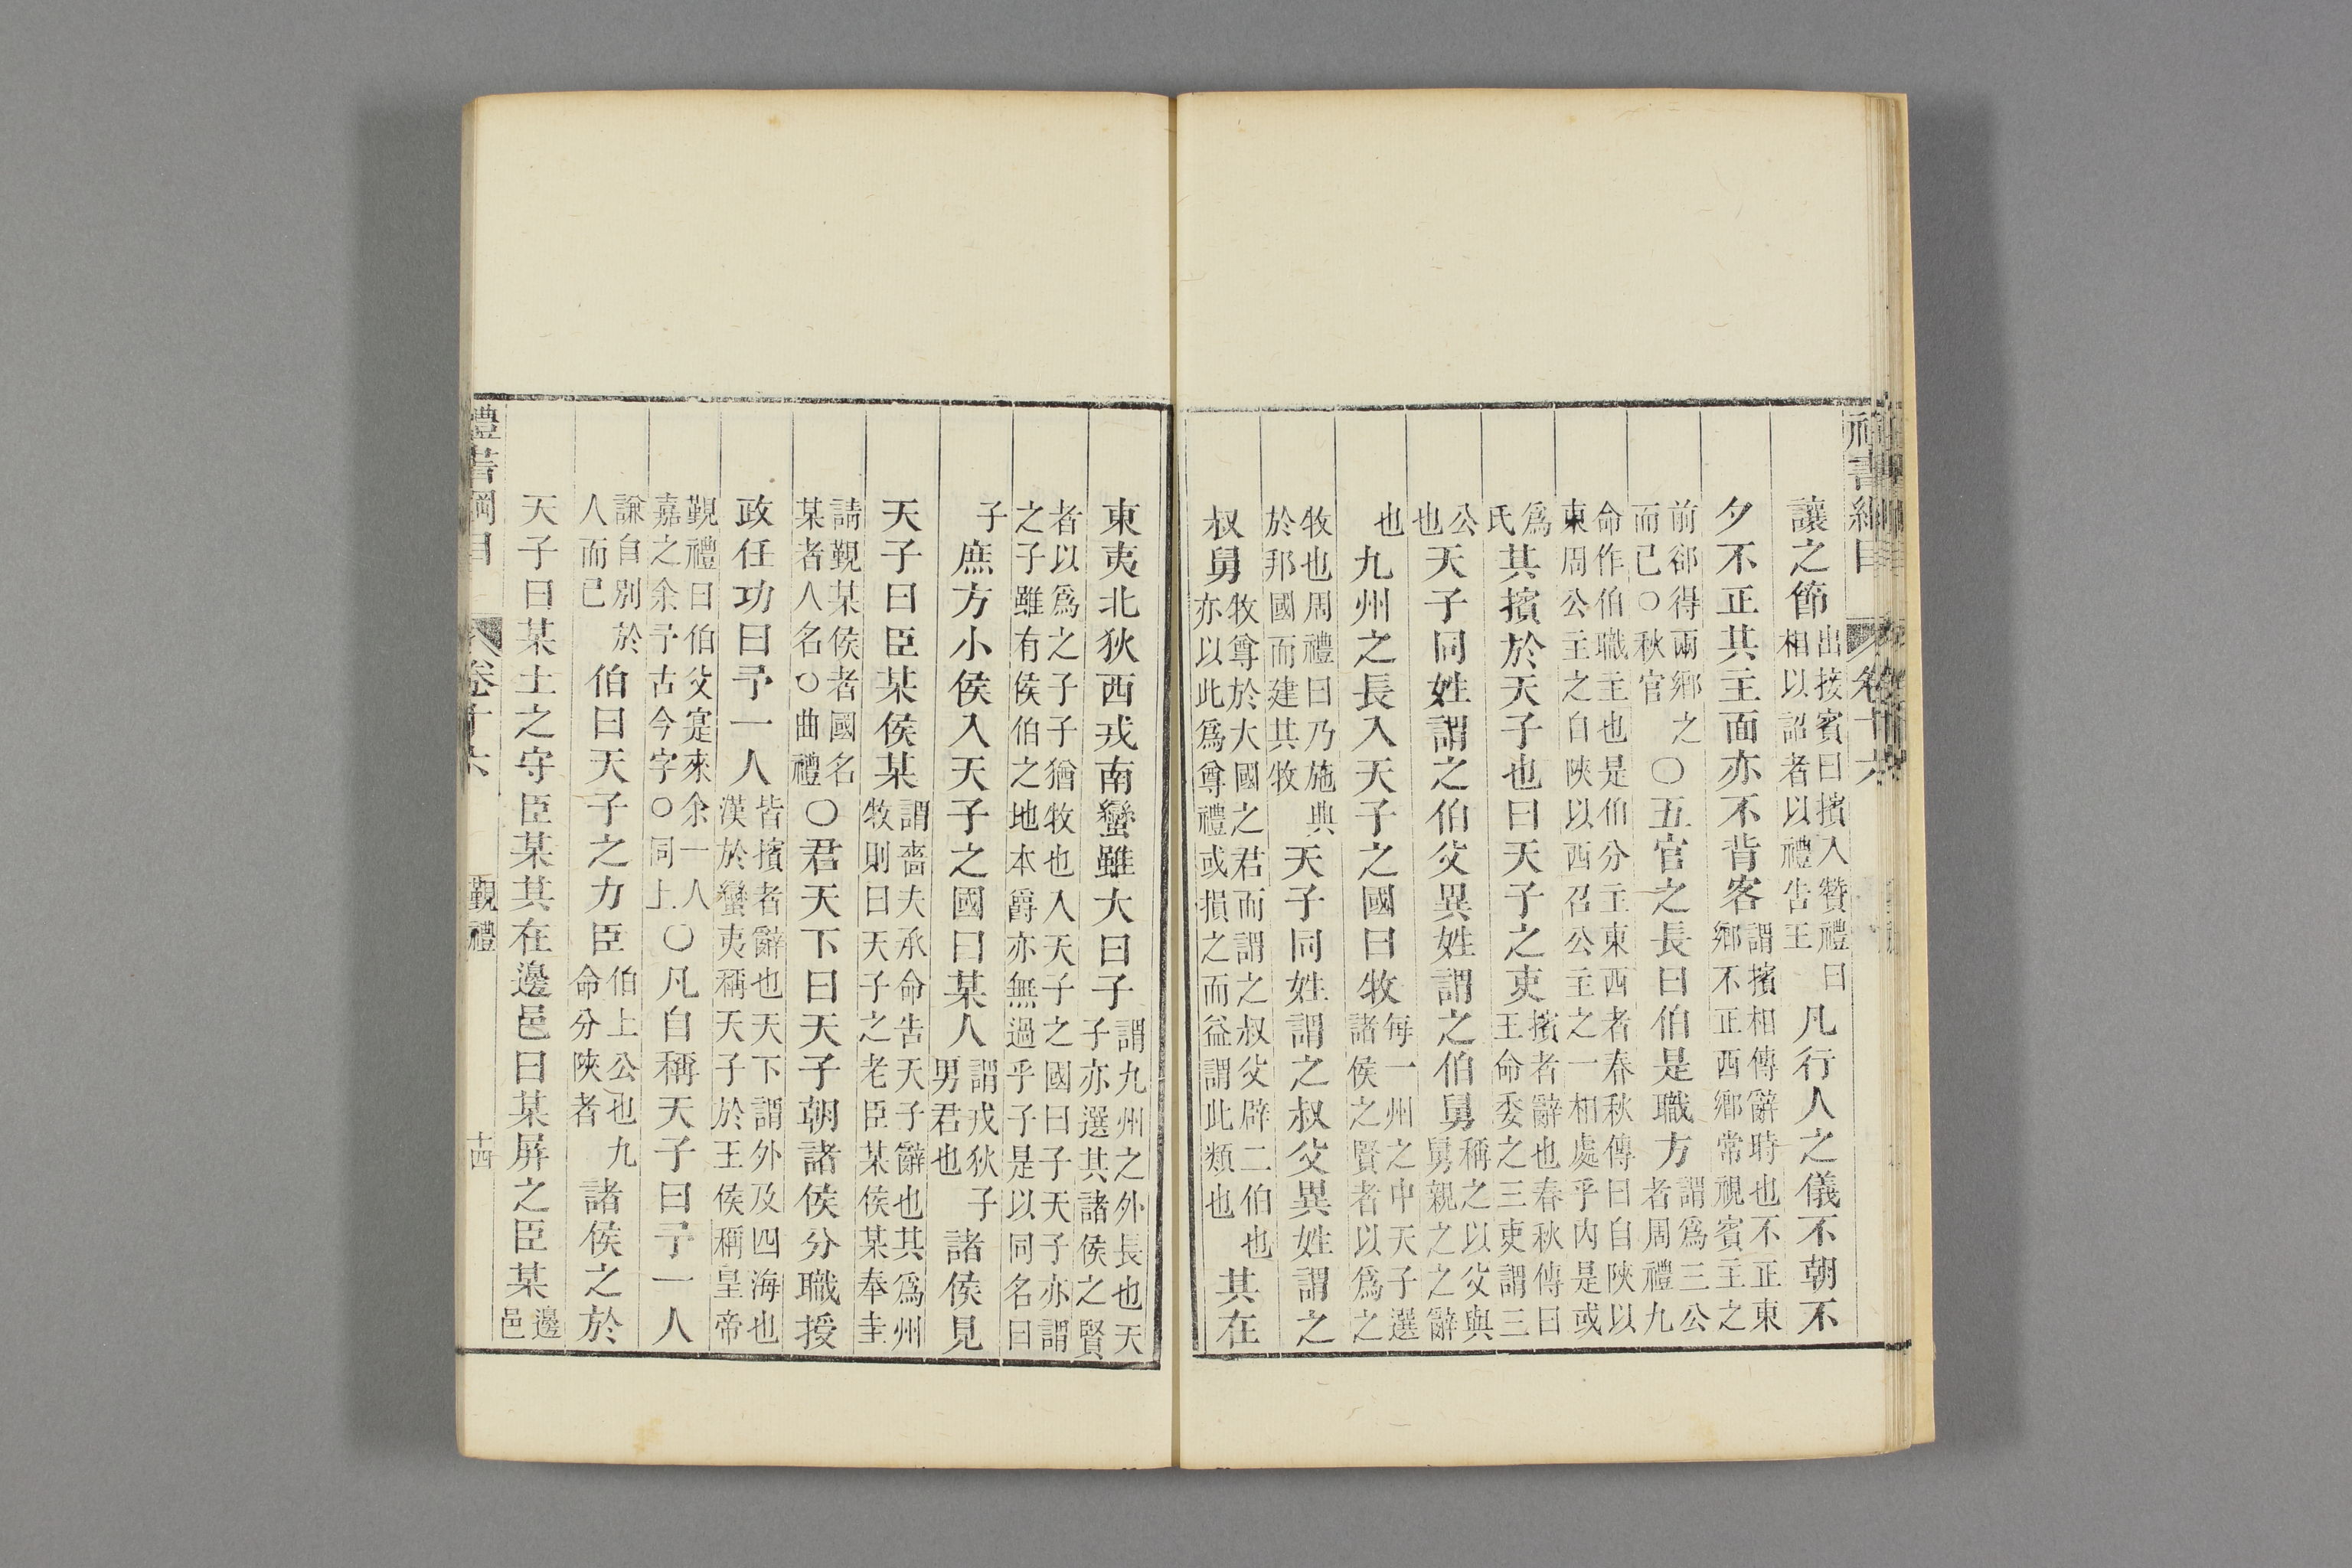 讓之節出接賓曰擯入贊禮曰相以詔者以禮告王凡行人之儀不朝不
夕不正其主面亦不背客謂擯相傳辭時也不正東鄉不正西鄉常視賓主之
前郤得兩鄉之而已○秋官○五官之長曰伯是職方謂爲三公者周禮九
命作伯職主也是伯分主東西者春秋傳曰自陝以東周公主之自陝以西召公主之一相處乎內是或
爲氏其擯於天子也曰天子之吏擯者辭也春秋傳曰王命委之三吏謂三
公也天子同姓謂之伯父異姓謂之伯舅稱之以父與舅親之之辭
也九州之長入天子之國曰牧每一州之中天子選諸侯之賢者以爲之
牧也周禮曰乃施典於邦國而建其牧天子同姓謂之叔父異姓謂之
叔舅牧尊於大國之君而謂之叔父辟二伯也亦以此爲尊禮或損之而益謂此類也其在
東夷北狄西戎南蠻雖大曰子謂九州之外長也天子亦選其諸侯之賢
者以爲之子子猶牧也入天子之國曰子天子亦謂之子雖有侯伯之地本爵亦無過乎子是以同名曰
子庶方小侯入天子之國曰某人謂戎狄子男君也諸侯見
天子曰臣某侯某謂嗇夫承命告天子辭也其爲州牧則曰天子之老臣某侯某奉圭
請覲某侯者國名某者人名○曲禮○君天下曰天子朝諸侯分職授
政任功曰予一人皆擯者辭也天下謂外及四海也漢於蠻夷稱天子於王侯稱皇帝
覲禮曰伯父寔來余一人嘉之余予古今字○同上○凡自稱天子曰予一人
謙自別於人而已伯曰天子之力臣伯上公也九命分陝者諸侯之於
天子曰某土之守臣某其在邊邑曰某屏之臣某邊邑
禮書綱目 卷十六 覲禮 十四